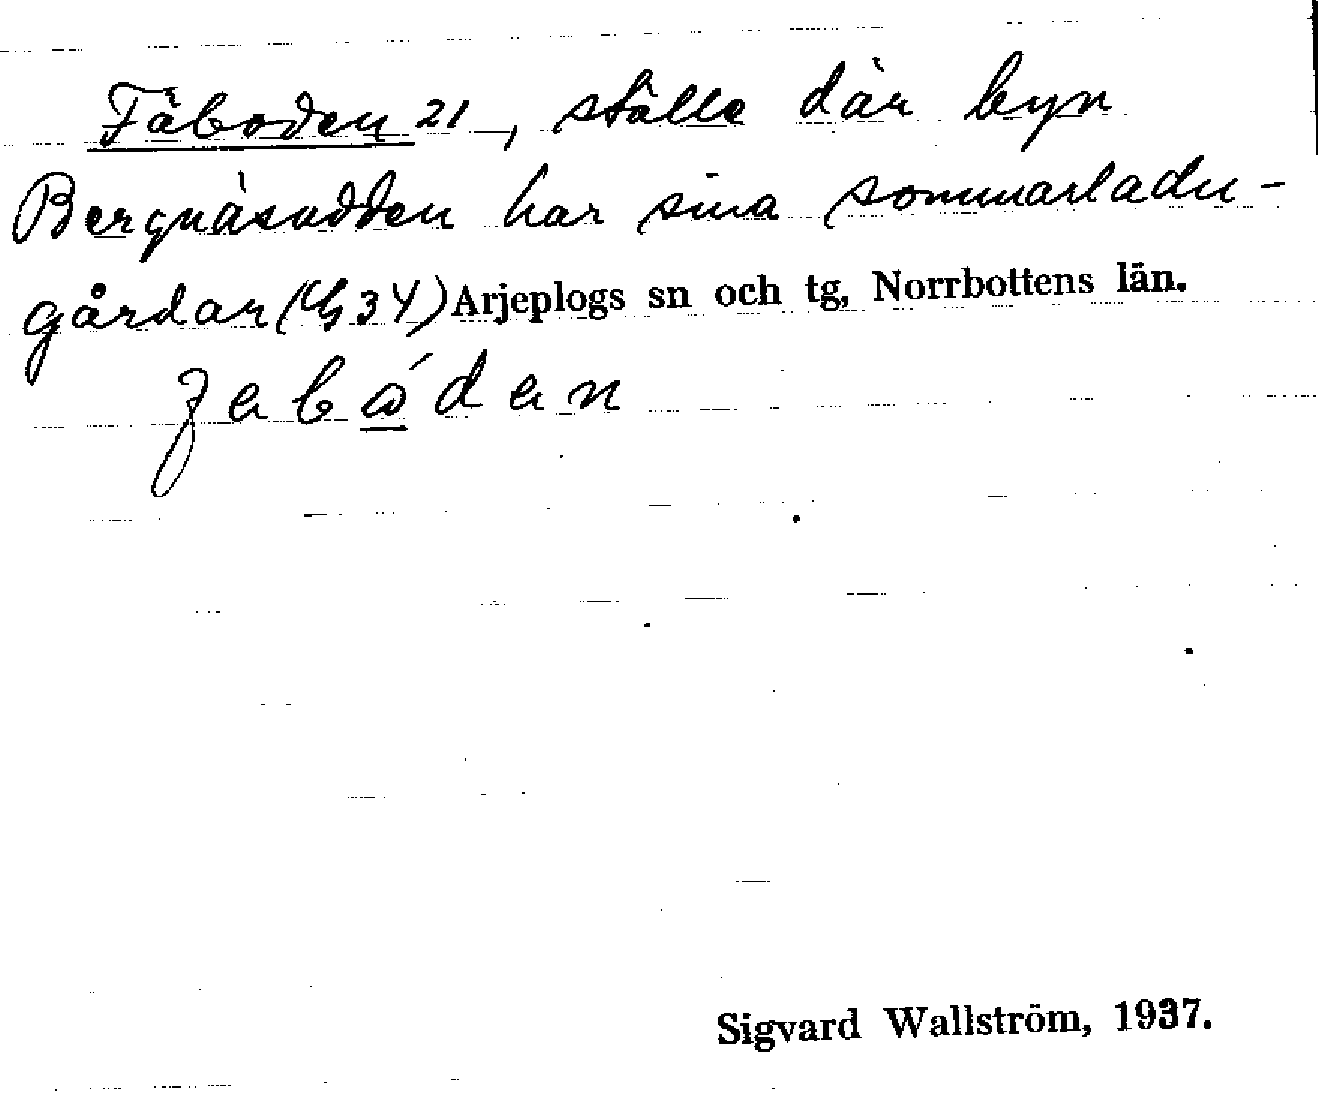 Fäboden 21, ställe där byn
Bergnäsudden har sina sommarladu-
gårdar (G34) Arjeplogs sn och tg, Norrbottens län.
Sigvard Wallström, 1937.